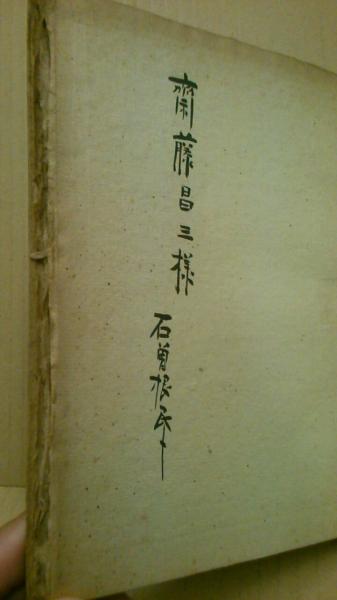 齋藤昌三様
石曽根民